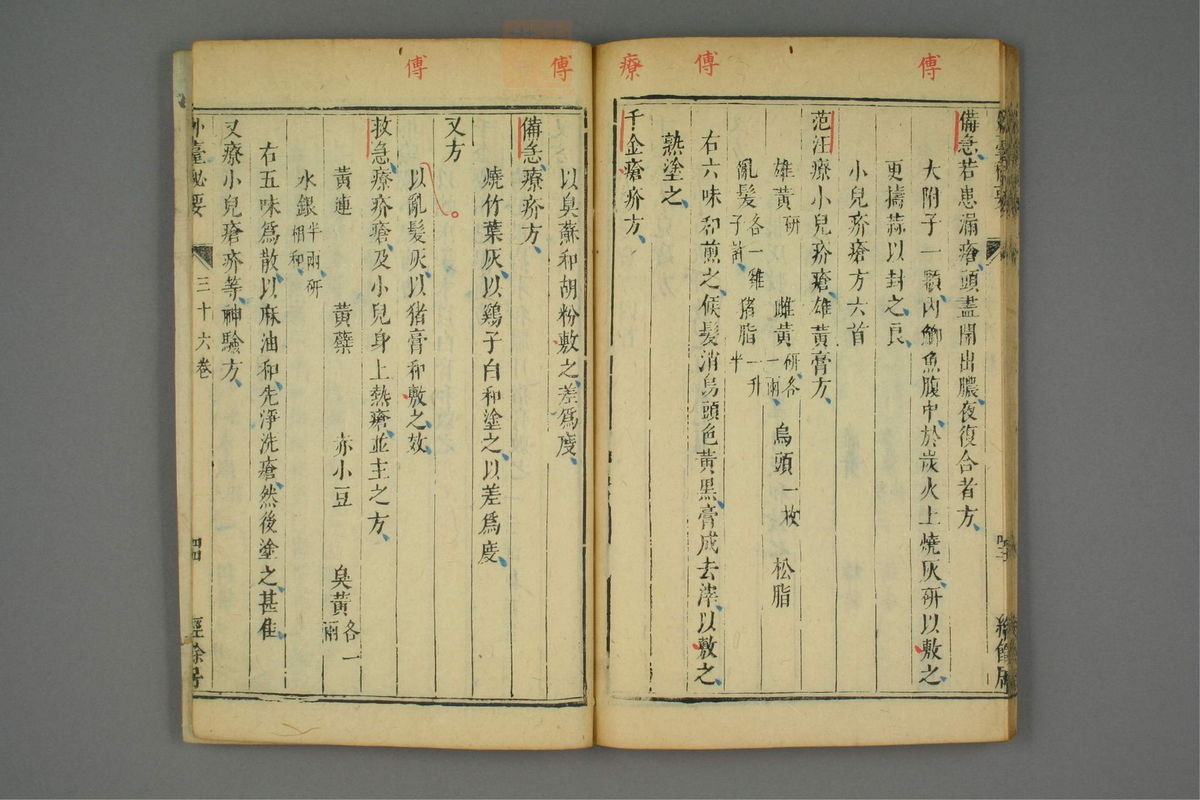 傅
傅
療
備急若患漏瘡頭盡開出膿夜復合者方
大附子一顆內鯽魚腹中於炭火上燒灰研以敷之
更擣蒜以封之良
小兒疥瘡方六首
范汪療小兒疥瘡雄黃膏方
雄黃研 雌黃研各一兩 烏頭一枚 松脂
亂髮各一雞子許 猪脂一升半
右六味和煎之候髮消烏頭色黃黑膏成去滓以敷之
熱塗之
千金瘡疥方
傅
傅
以臭蘇和胡粉敷之差為度
備急療疥方
燒竹葉灰以鷄子白和塗之以差為度
又方
以亂髮灰以猪膏和敷之效
救急療疥瘡及小兒身上熱瘡並主之方
黃連 黃蘗 赤小豆 臭黃各一兩
水銀半兩研相和
右五味為散以麻油和先淨洗瘡然後塗之甚佳
又療小兒瘡疥等神驗方
外臺秘要 三十六卷 經餘居